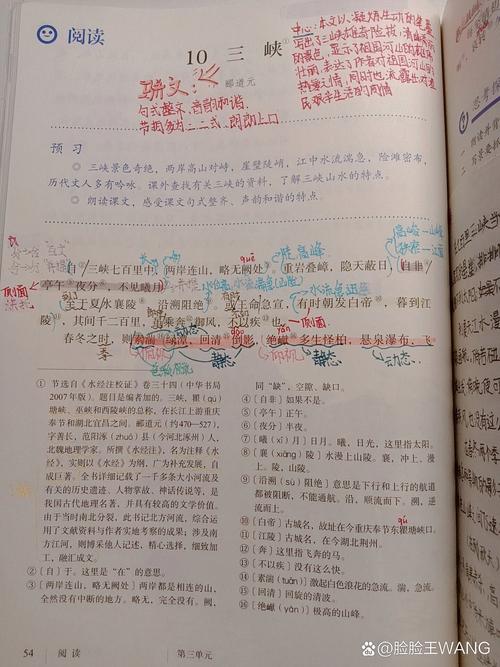 阅读
10 三峡①
郦道元
骈文:
句式整齐、音韵和谐
节拍多为二二式,朗朗上口
中心:本文以凝炼生动的笔墨
写出了三峡雄奇险拔、清幽秀丽
的景色,显示了祖国河山的雄伟
壮丽,表达了作者对祖国河山的
热爱之情,同时也流露出对
民艰辛生活的同情
预习
◎ 三峡景色奇绝,两岸高山对峙,崖壁陡峭,江中水流湍急,险滩密布,
历代文人多有吟咏。课外查找有关三峡的资料,了解三峡山水的特点。
◎ 朗读课文,感受课文句式整齐、声韵和谐的特点。
quē
自②三峡七百里中,两岸连山,略无阙处③。重岩叠嶂,隐天蔽日,自非④
亭午⑤夜分⑥,不见曦月⑦。
至于夏水襄陵⑧,沿溯阻绝⑨。或王命急宣,有时朝发白帝⑩,暮到江
陵⑪,其间千二百里,虽乘奔⑫御风,不以疾⑬也。
春冬之时,则素湍⑭绿潭,回清⑮倒影,绝巘⑯多生怪柏,悬泉瀑布,飞
静态
静态
动态
① 节选自《水经注校证》卷三十四(中华书局
2007年版)。题目是编者加的。三峡,瞿(qú)
塘峡、巫峡和西陵峡的总称,在长江上游重庆
奉节和湖北宜昌之间。郦道元(约470—527),
字善长,范阳涿(zhuō)县(今河北涿州)人,
北魏地理学家。所撰《水经注》,名为注释《水
经》,实则以《水经》为纲,广为补充发展,自
成巨著。全书详细记载了一千多条大小河流及
有关的历史遗迹、人物掌故、神话传说等,是
我国古代地理名著,并具有较高的文学价值。
由于当时南北分裂,此书记北方河流,综合运
用了文献资料与作者实地考察的成果;涉及南
方江河,则博采他人记述,精心选择,细致加
工,融汇成文。
②〔自〕于。这里是“在”的意思。
③〔两岸连山,略无阙处〕两岸都是相连的山,
全然没有中断的地方。略无,完全没有。阙,
同“缺”,空隙、缺口。
④〔自非〕如果不是。
⑤〔亭午〕正午。
⑥〔夜分〕半夜。
⑦〔曦(xī)月〕日月。曦,日光,这里指太阳。
⑧〔襄(xiāng)陵〕水漫上山陵。襄,冲上、漫
上。陵,山陵。
⑨〔沿溯(sù)阻绝〕意思是下行和上行的航道
都被阻断,不能通航。沿,顺流而下。溯,逆
流而上。
⑩〔白帝〕古城名,故址在今重庆奉节东瞿塘峡口。
⑪〔江陵〕古城名,在今湖北荆州。
⑫〔奔〕这里指飞奔的马。
⑬〔不以疾〕没有这么快。
⑭〔素湍(tuān)〕激起白色浪花的急流。湍,急流。
⑮〔回清〕回旋的清波。
⑯〔绝巘(yǎn)〕极高的山峰。
54 阅读 第三单元
@脸脸王WANG